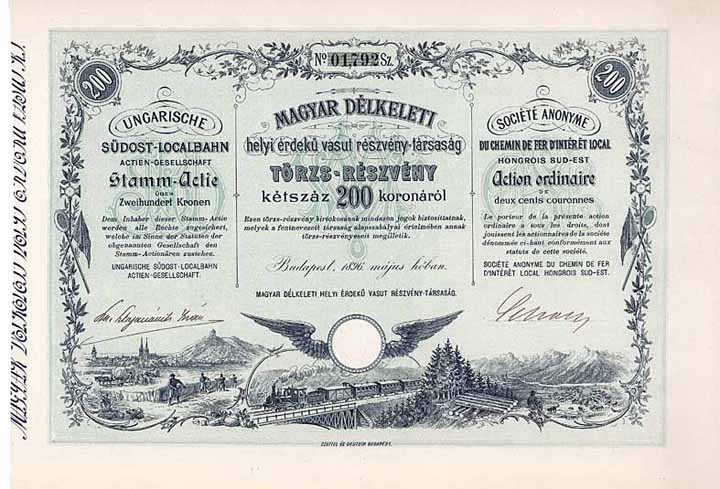 No 01,792 Sz.
200
200
UNGARISCHE
SÜDOST-LOCALBAHN
ACTIEN-GESELLSCHAFT
Stamm-Actie
ÜBER
Zweihundert Kronen
Dem Inhaber dieser Stamm-Actie
werden alle Rechte zugesichert,
welche im Sinne der Statuten der
obgenannten Gesellschaft den
Stamm-Actionären zustehen.
UNGARISCHE SÜDOST-LOCALBAHN
ACTIEN-GESELLSCHAFT.
MAGYAR DÉLKELETI
helyi érdekü vasut részvény-társaság
TÖRZS-RÉSZVÉNY
kétszáz 200 koronáról
Ezen törzs-részvény birtokosának mindazon jogok biztosíttatnak,
melyek a fentnevezett társaság alapszabályai értelmében annak
törzs-részvényeseit megilletik.
Budapest, 1896. május hóban.
MAGYAR DÉLKELETI HELYI ÉRDEKÜ VASUT RÉSZVÉNY-TÁRSASÁG.
SOCIÉTÉ ANONYME
DU CHEMIN DE FER D'INTÉRÊT LOCAL
HONGROIS SUD-EST
Action ordinaire
DE
deux cents couronnes
Le porteur de la présente action
ordinaire a tous les droits, dont
jouissent les actionnaires de la société
dénommée ci-haut conformément aux
statuts de cette société.
SOCIÉTÉ ANONYME DU CHEMIN DE FER
D'INTÉRÊT LOCAL HONGROIS SUD-EST.
CZETTEL ÉS DEUTSCH BUDAPEST.